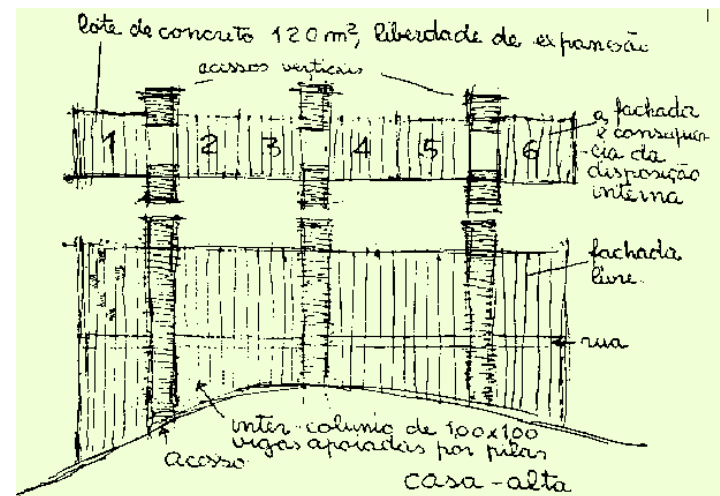 lote de concreto 120 m², liberdade de expansão
acessos verticais
a fachada
é consequên-
cia da
disposição
interna
1 2 3 4 5 6
fachada
livre
rua
inter-colunio de 1,00x1,00
vigas apoiadas por pilas
acesso
casa-alta